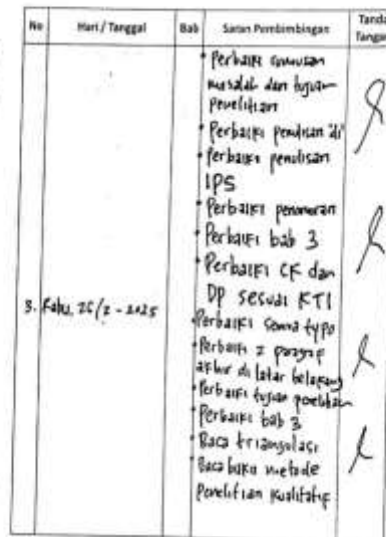 No Hari / Tanggal Bab Saran Pembimbingan Tanda Tangan
• Perbaiki rumusan
masalah dan tujuan
penelitian
• Perbaiki penulisan "di"
• Perbaiki penulisan
IPS
• Perbaiki penomoran
• Perbaiki bab 3
• Perbaiki CK dan
DP sesuai KTI
3. Rabu, 26/2 - 2025
• Perbaiki semua typo
• Perbaiki 2 paragraf
akhir di latar belakang
• Perbaiki tujuan penelitian
• Perbaiki bab 3
• Baca triangulasi
Baca buku metode
Penelitian Kualitatif